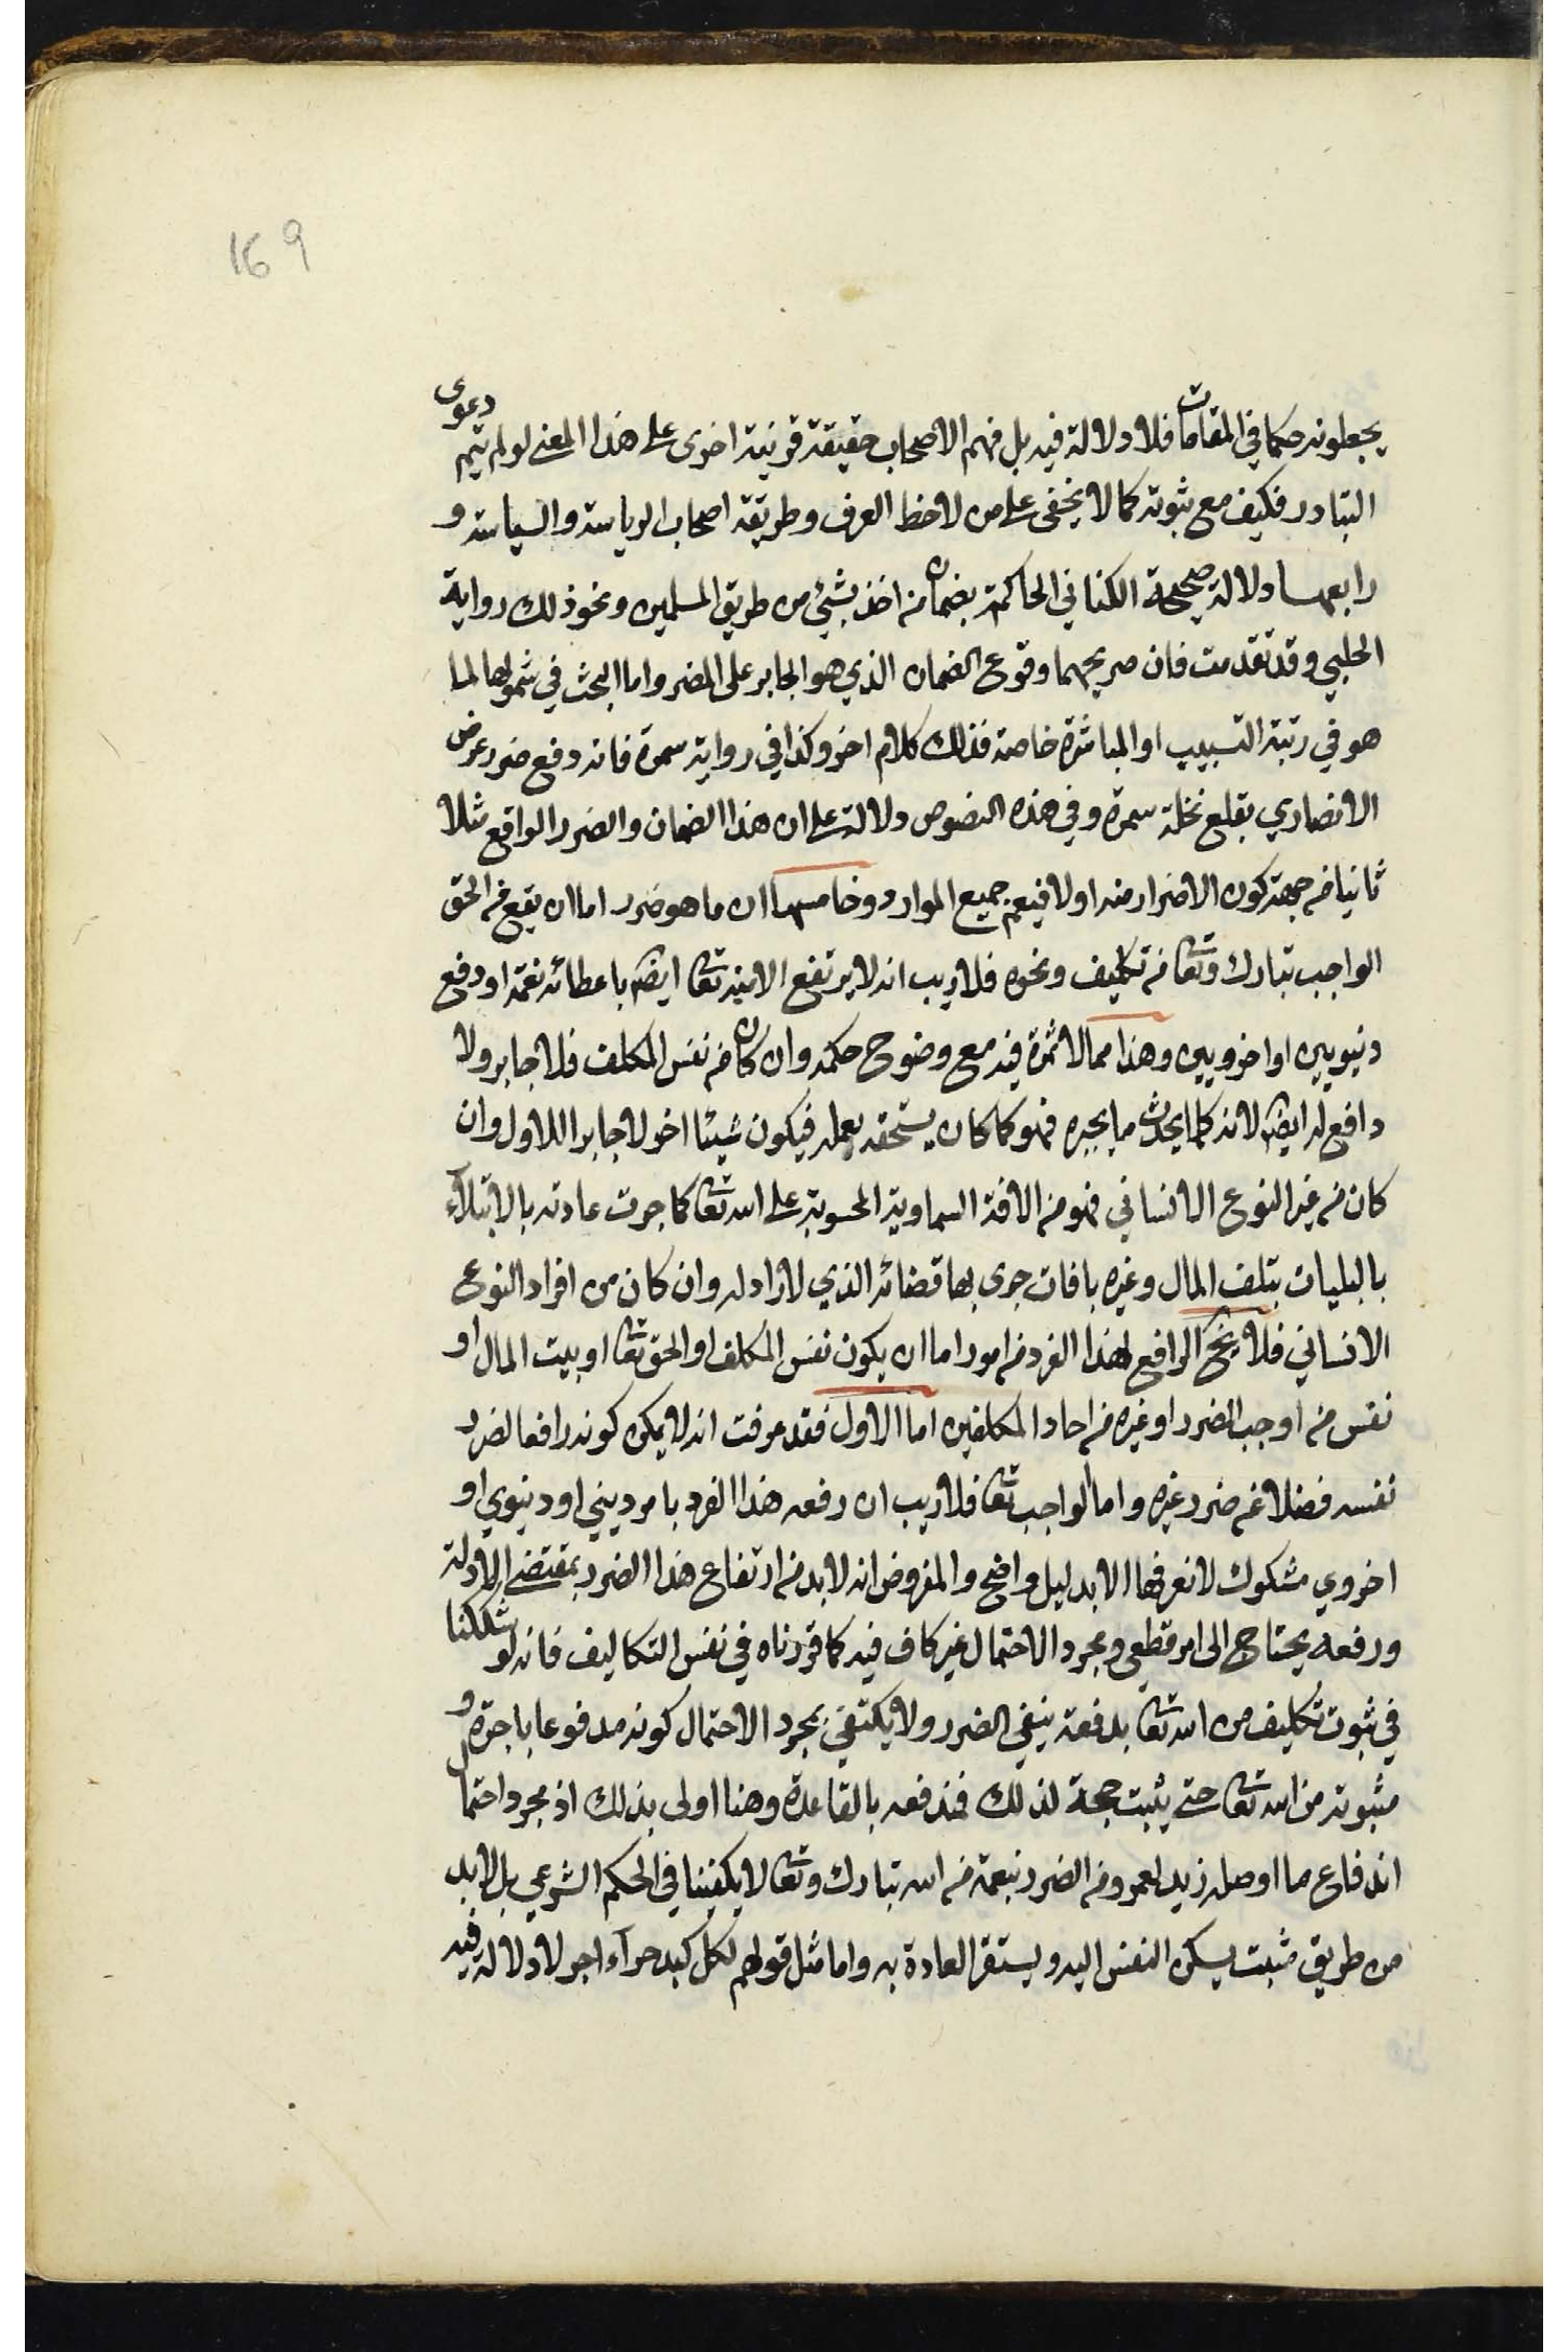 169
يجعلونه حكما في المقامات فلا دلالة فيه بل فهم الاصحاب حقيقة قرنية اخرى على هذا المعنى لو لم يتم دعوى
التبادر فكيف مع ثبوته كما لا يخفى على من لاحظ العرف وطريقة اصحاب الرياسة والسياسة و
رابعها دلالة صحيحة الكناني الحاكمة بضمان من اخذ بشئ من طريق المسلمين ونحو ذلك رواية
الحلبي وقد تقدمت فان صريحهما وقوع الضمان الذي هو الجابر على المضر واما البحث في شمولها لما
هو في رتبة التسبيب او المباشرة خاصة فذلك كلام اخر وكذا في رواية سمرة فانه دفع ضرر عرض
الانصاري بقلع نخلة سمرة وفي هذه النصوص دلالة على ان هذا الضمان والضرر الواقع مثلا
ثانيا من جهة كون الاضرار منه اولا فيعم جميع الموارد وخامسها ان ما هو ضرر اما ان يقع من الحق
الواجب تبارك وتعا من تكليف ونحوه فلا ريب انه لا يرتفع الا منه تعا ايضا باعطائه نفعه او دفع
دنيويين او اخرويين وهذا مما لا ثمرة فيه مع وضوح حكمه وان كان من نفس المكلف فلا جابر ولا
دافع له ايضا لانه كلما يحدث ما يجبره فهو كما كان يستحقه بعمله فيكون شيئا اخر لا جابرا للاول وان
كان من غير النوع الانساني فهو من الافة السماوية المحسوبة على الله تعا كما جرت عادته بالابتلاء
بالبليات بتلف المال وغيره بافات جرى بها قضائه الذي لا راد له وان كان من افراد النوع
الانساني فلا يخ الرافع لهذا الفرد من امور اما ان يكون نفس المكلف او الحق تعا او بيت المال او
نفس من اوجب الضرر او غيره من احاد المكلفين اما الاول فقد عرفت انه لا يمكن كونه رافعا لضرر
نفسه فضلا عن ضرر غيره واما الواجب تعا فلا ريب ان رفعه هذا الفرد بامر ديني او دنيوي او
اخروي مشكوك لا نعرفها الا بدليل واضح والمفروض انه لا بد من ارتفاع هذا الضرر بمقتضى الادلة
ورفعه يحتاج الى امر قطعي ومجرد الاحتمال غير كاف فيه كما قررناه في نفس التكاليف فانه لو شككنا
في ثبوت تكليف من الله تعا بدفعة ينفي الضرر ولا يكتفى بمجرد الاحتمال كونه مدفوعا باجرة و
مثوبة من الله تعا حتى يثبت حجة لذلك فندفعه بالقاعدة وهنا اولى بذلك اذ مجرد احتمال
اندفاع ما اوصله زيد لعمرو من الضرر بنعمة من الله تبارك وتعا لا يكفينا في الحكم الشرعي بل لا بد
من طريق مثبت يسكن النفس اليه ويستقر العادة به واما مثل قولهم لكل كبد حراء اجر لا دلالة فيه